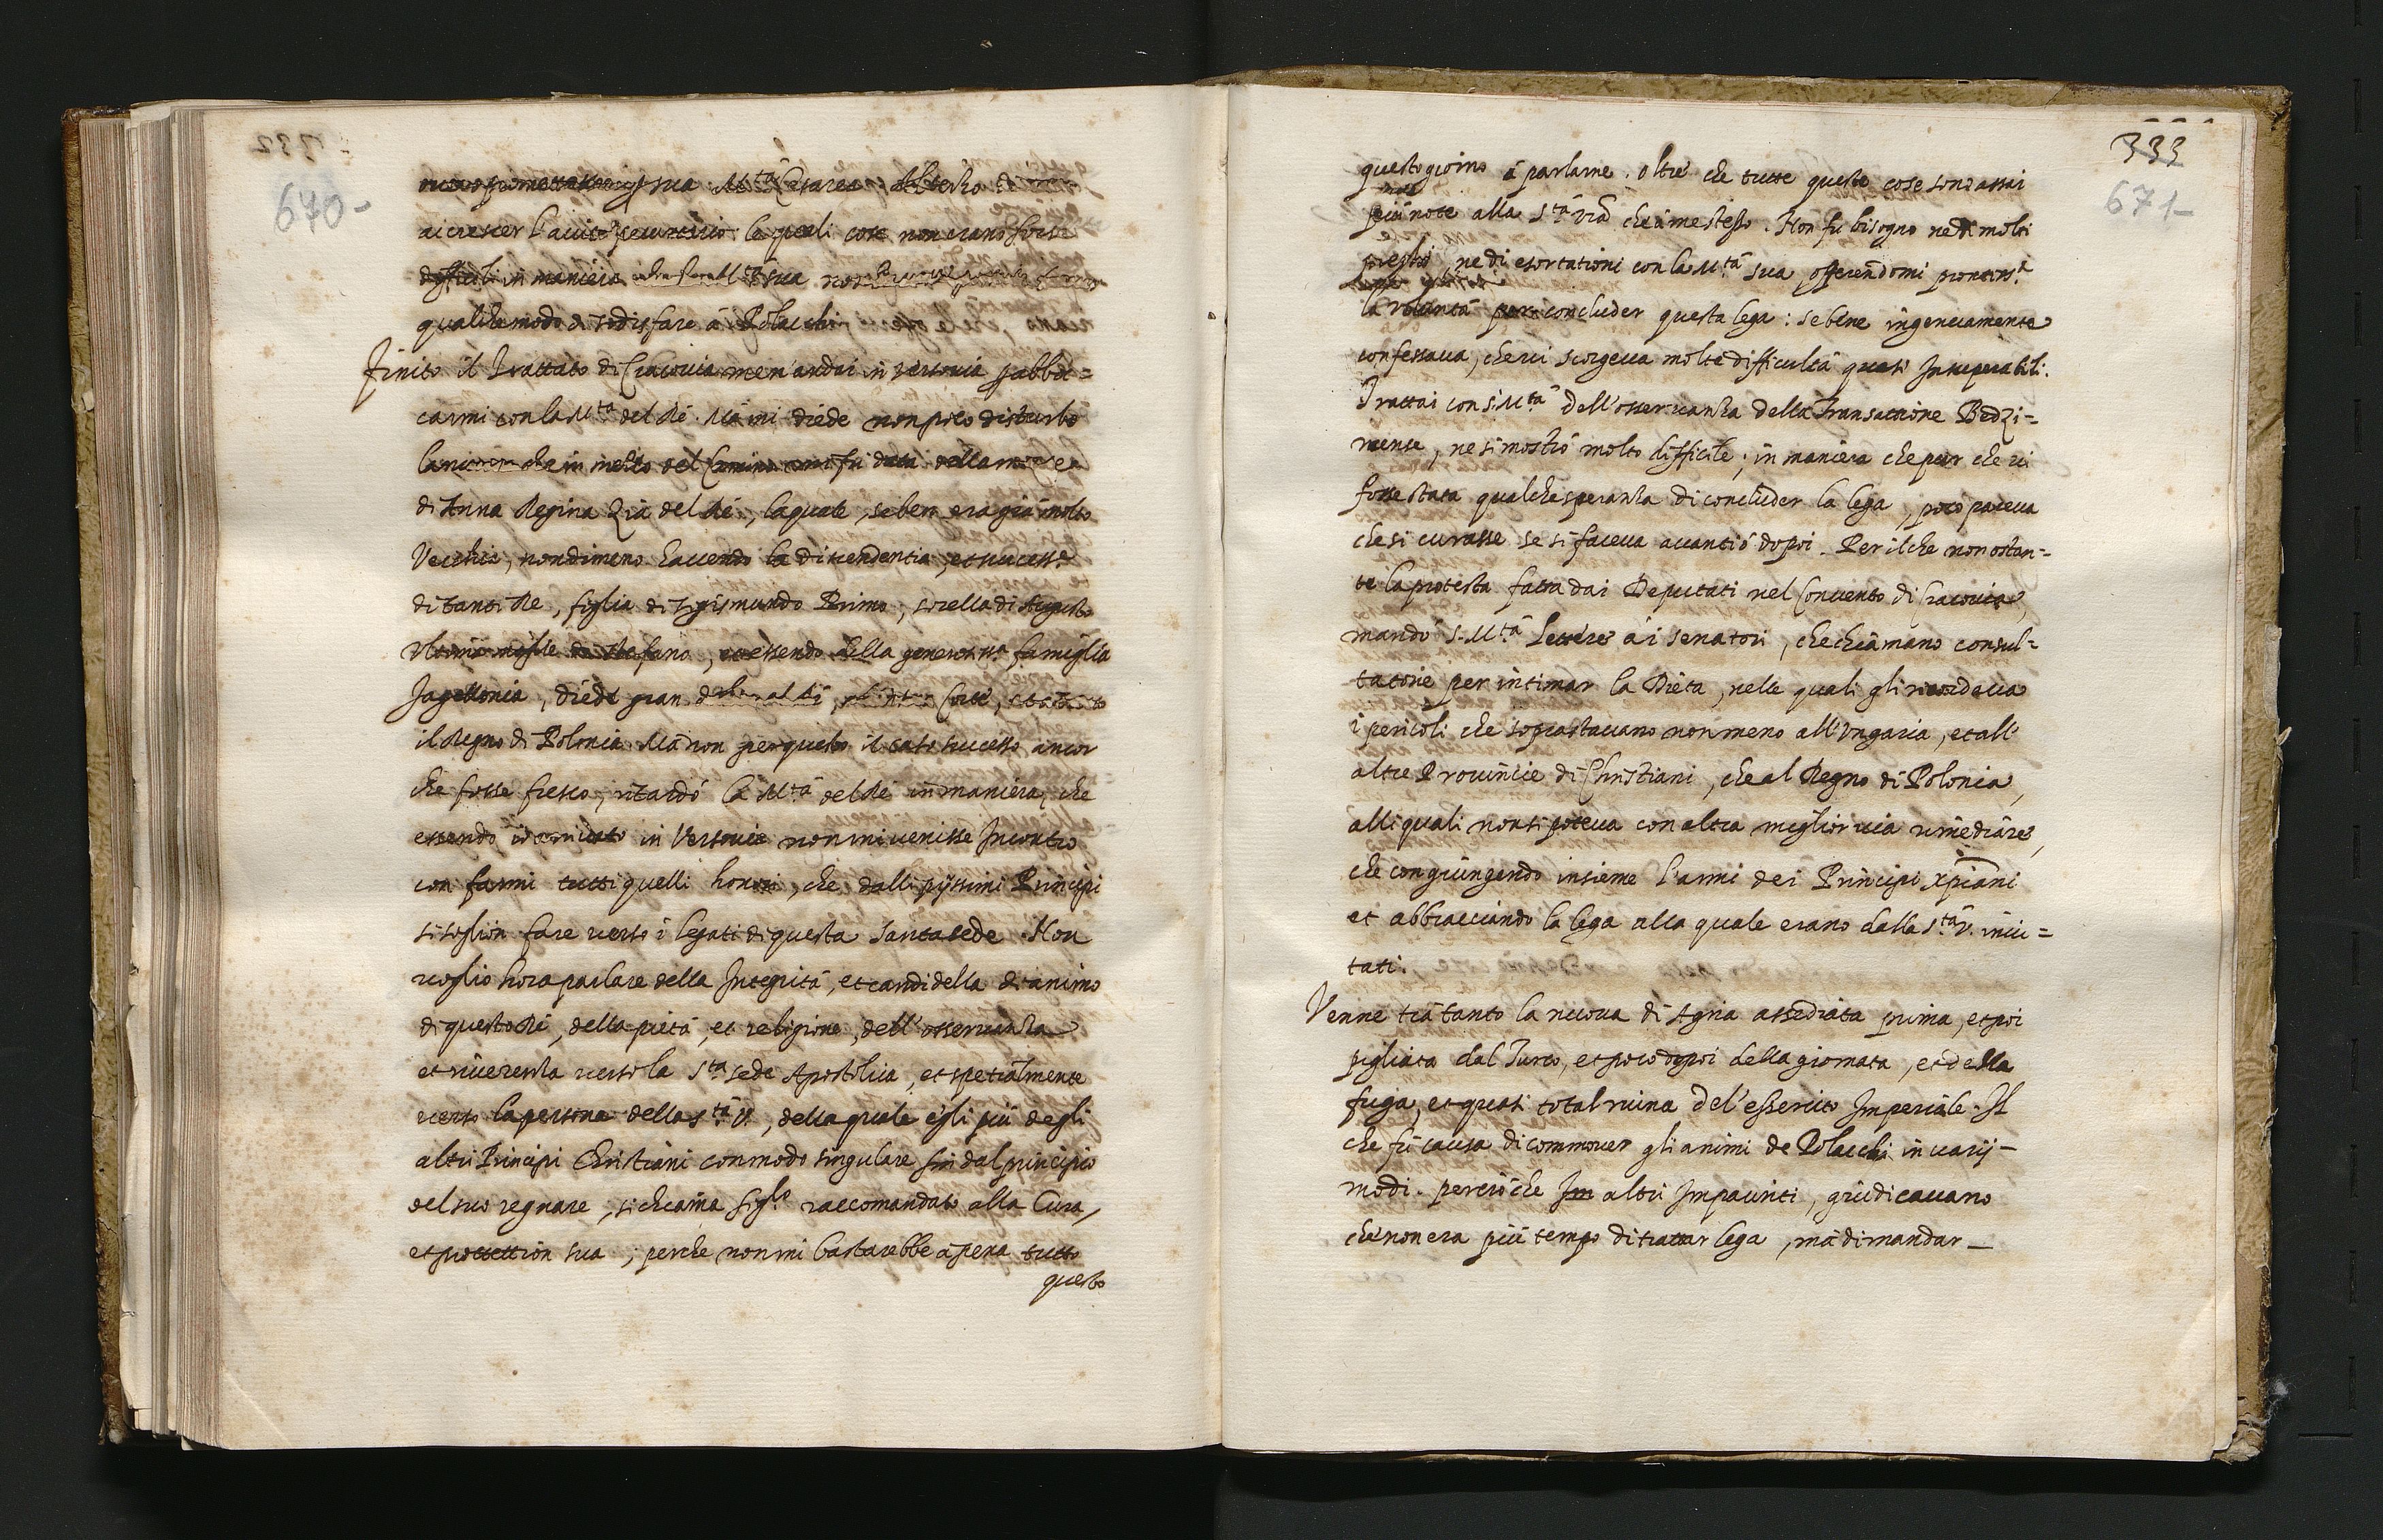 670-
sua M.tà Cesarea
accrescer l'aiuto pecuniario le quali cose non erano forse
difficili in maniera sua non
qualche modo di sodisfare à Polacchi
Finito il Trattato di Cracovia men'andai in Versovia p abboc=
carmi con la M.tà del Rè. Mà mi diede non poco disturbo
che in mezzo del Camino mi fù data della morte
di Anna Regina Zia del Rè, la quale, se ben era già molto
Vecchia, nondimeno havendo la discendentia, et success.e
di tanti Re, figlia di Sigismundo Primo, sorella di Augusto
Ultimo moglie de Stefano, et essendo della generosiss.a famiglia
Jagellonia, diede gran Corte, et à tutto
il Regno di Polonia. Mà non per questo il caso successo ancor
che fosse fresco, ritardò la M.tà del Rè in maniera, che
essendo io arrivato in Versovia non mi venisse Incontro
con farmi tutti quelli honori, che dalli pijssimi Principi
si soglion fare verso i legati di questa Santa sede. Non
voglio hora parlare della Integrità, et candidella di animo
di questo Rè, della pietà, et religione, dell'osservanza
et riverenza verso la S.ta sede Apostolica, et spetialmente
verso la persona della S.tà V., della quale egli più degli
altri Principi Christiani con modo singulare fin dal principio
del suo regnare, si chiama figl.o raccomandato alla Cura,
et protettion sua; perche non mi bastarebbe à pena tutto
questo
333
671-
questo giorno à parlarne. oltre che tutte queste cose sono assai
più note alla S.tà Vra che à me stesso. Non fu bisogno ne di molti
prieghi, ne di esortationi con la M.tà sua offerendomi prontiss.a
la voluntà per concluder questa lega: se bene ingenuamente
confessava, che vi scorgeva molte difficultà quasi Insuperabili.
Trattai con S. M.tà dell'osservanza della Transattione Bedzi=
nense, ne si mostrò molto difficile; in maniera che pur che vi
fosse stata qualche speranza di concluder la lega, poco pareva
che si curasse se si faceva avanti ò dopoi. Per il che non ostan=
te la protesta fatta dai Deputati nel Convento di Cracovia,
mandò S. M.tà lettere ài senatori, che chiamano consul=
tatorie per intimar la Dieta, nelle quali gli ricordava
i pericoli che soprastavano non meno all'Ungaria, et all'
altre Provincie di Christiani, che al Regno di Polonia,
alli quali non si poteva con altra miglior via rimediare,
che congiungendo insieme l'armi dei Principi Xpiani
et abbracciando la lega alla quale erano dalla S.tà V. invi=
tati.
Venne trà tanto la nuova di Agria assediata prima, et poi
pigliata dal Turco, et poco dopoi della giornata, et della
fuga, et quasi total ruina del'essercito Imperiale. Il
che fù causa di commover gli animi de Polacchi in varij-
modi. percioche altri Impauriti, giudicavano
che non era più tempo di trattar lega, mà di mandar-